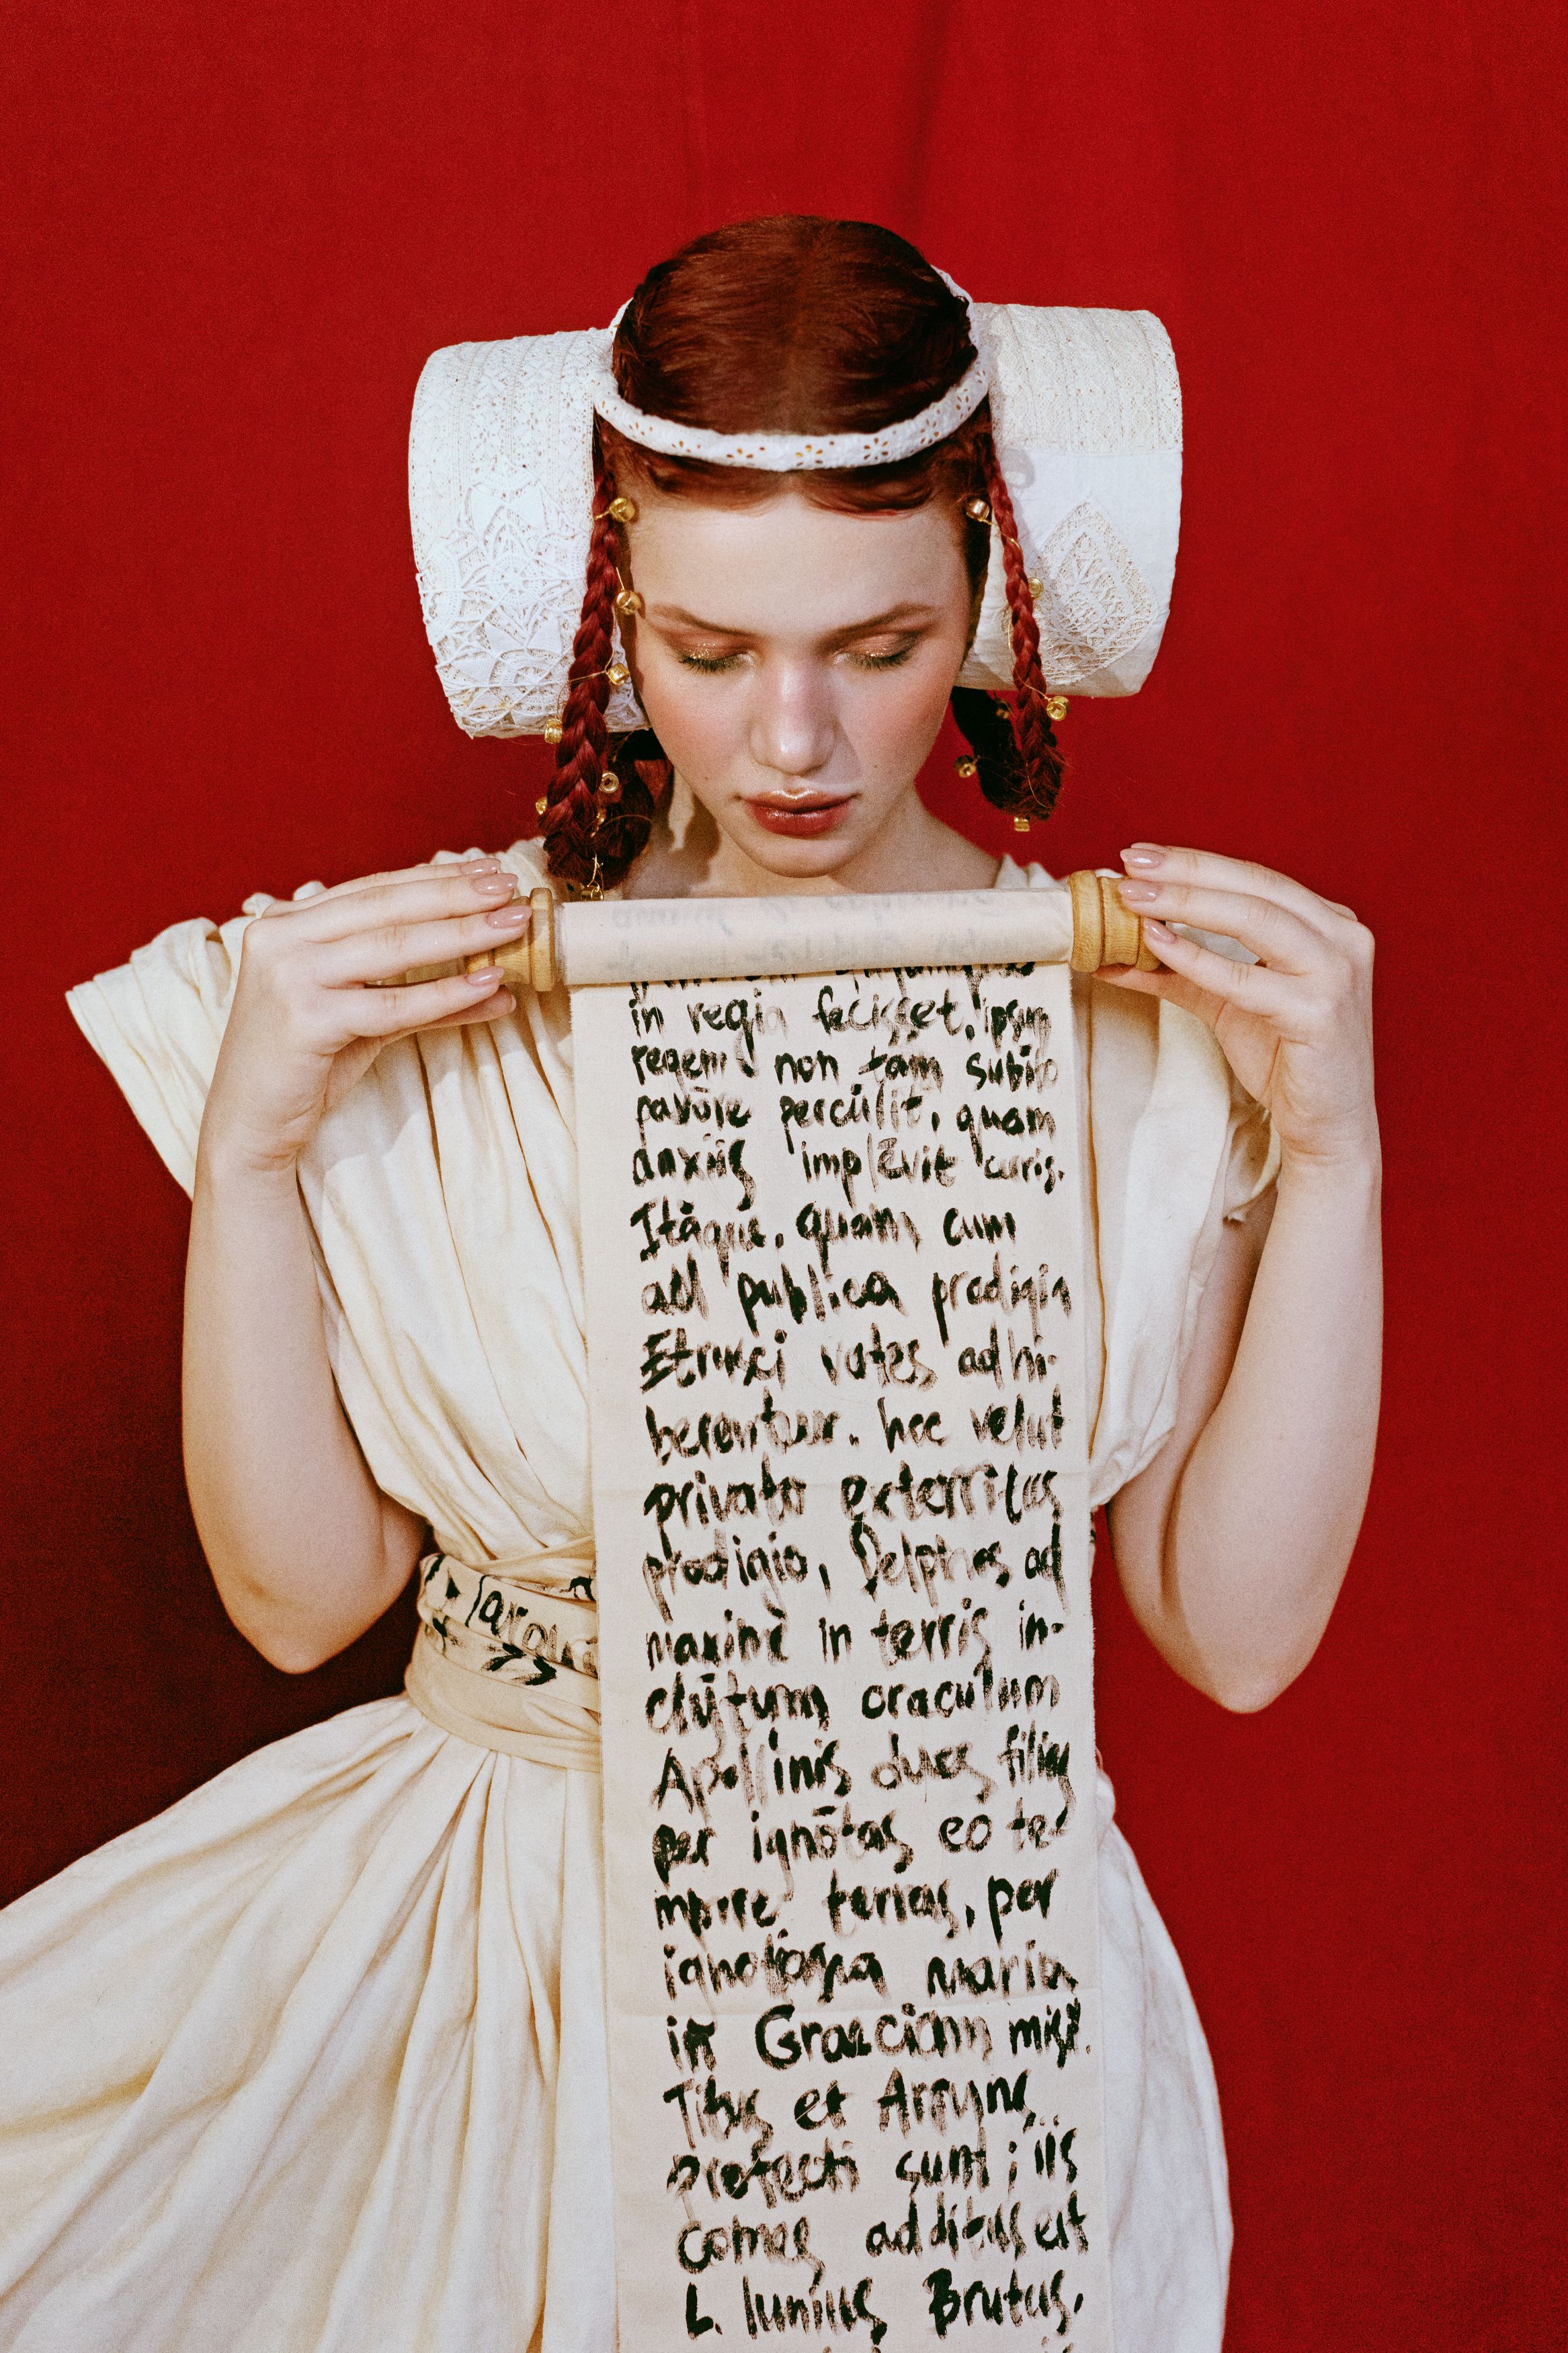 in regia fecisset, ipsum
regem non tam subito
pavōre percŭlit, quam
anxiis implēvit curis.
Ităque, quam cum
ad publica prodigia
Etrusci vates adhi-
berentur, hoc velut
privato exterritus
prodigio, Delphos ad
maxime in terris in-
clŭtum oraculum
Apollinis duos filios
per ignōtas eo te-
mpore terras, per
ignotiora maria
in Graeciam misit.
Titus et Arruns
profecti sunt; iis
comes additus est
L. Iunius Brutus,
Tarqui